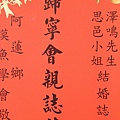 澤鳴先生
思邑小姐
結婚誌
歸寧會親誌
阿蓮鄉
魚學會敬